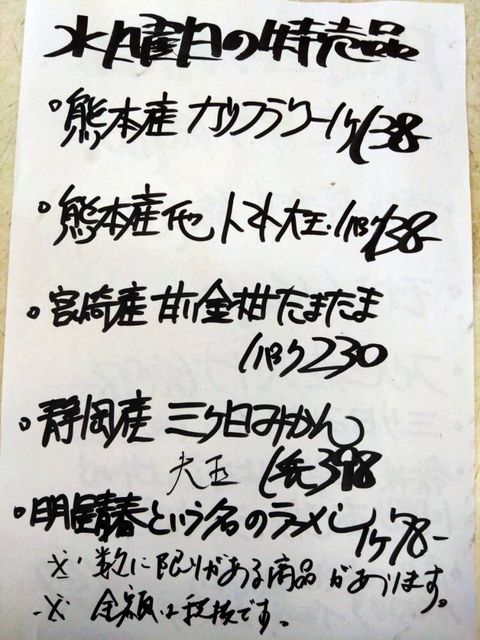 水曜日の特売品
。熊本産 カリフラワー1ケ138-
。熊本産他 トマト大玉.1パック138-
。宮崎産 甘い金柑たまたま
1パック230
。静岡産 三ケ日みかん
大玉 1袋398
。明星青春という名のラーメン1ケ78-
※ 数に限りがある商品があります。
※ 金額は税抜です。